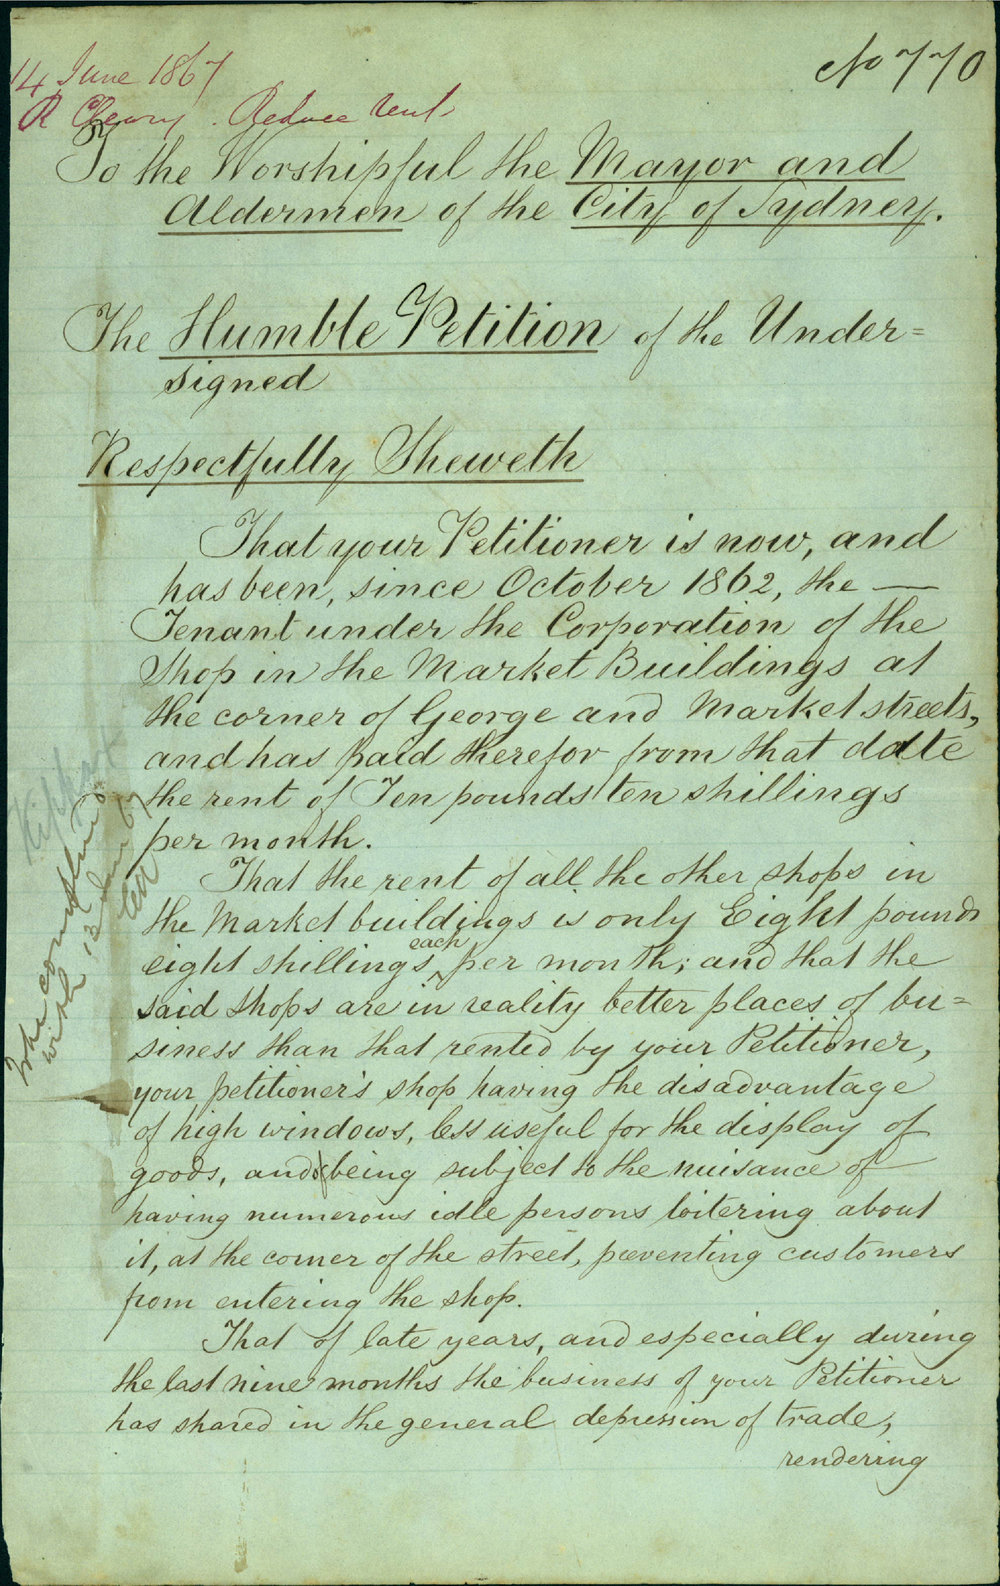 No 770
14 June 1867
R Cherry. Reduce rent
To the Worshipful the Mayor and
Aldermen of the City of Sydney.
The Humble Petition of the Under=
signed
Respectfully Sheweth
That your Petitioner is now, and
has been, since October 1862, the —
Tenant under the Corporation of the
Shop in the Market Buildings at
the corner of George and Market streets,
and has paid therefor from that date
the rent of Ten pounds ten shillings
per month.
That the rent of all the other shops in
the Market buildings is only Eight pounds
eight shillings each per month; and that the
said shops are in reality better places of bu=
siness than that rented by your Petitioner,
your petitioner's shop having the disadvantage
of high windows, less useful for the display of
goods, and being subject to the nuisance of
having numerous idle persons loitering about
it, at the corner of the street, preventing customers
from entering the shop.
That of late years, and especially during
the last nine months the business of your Petitioner
has shared in the general depression of trade,
rendering
with 12